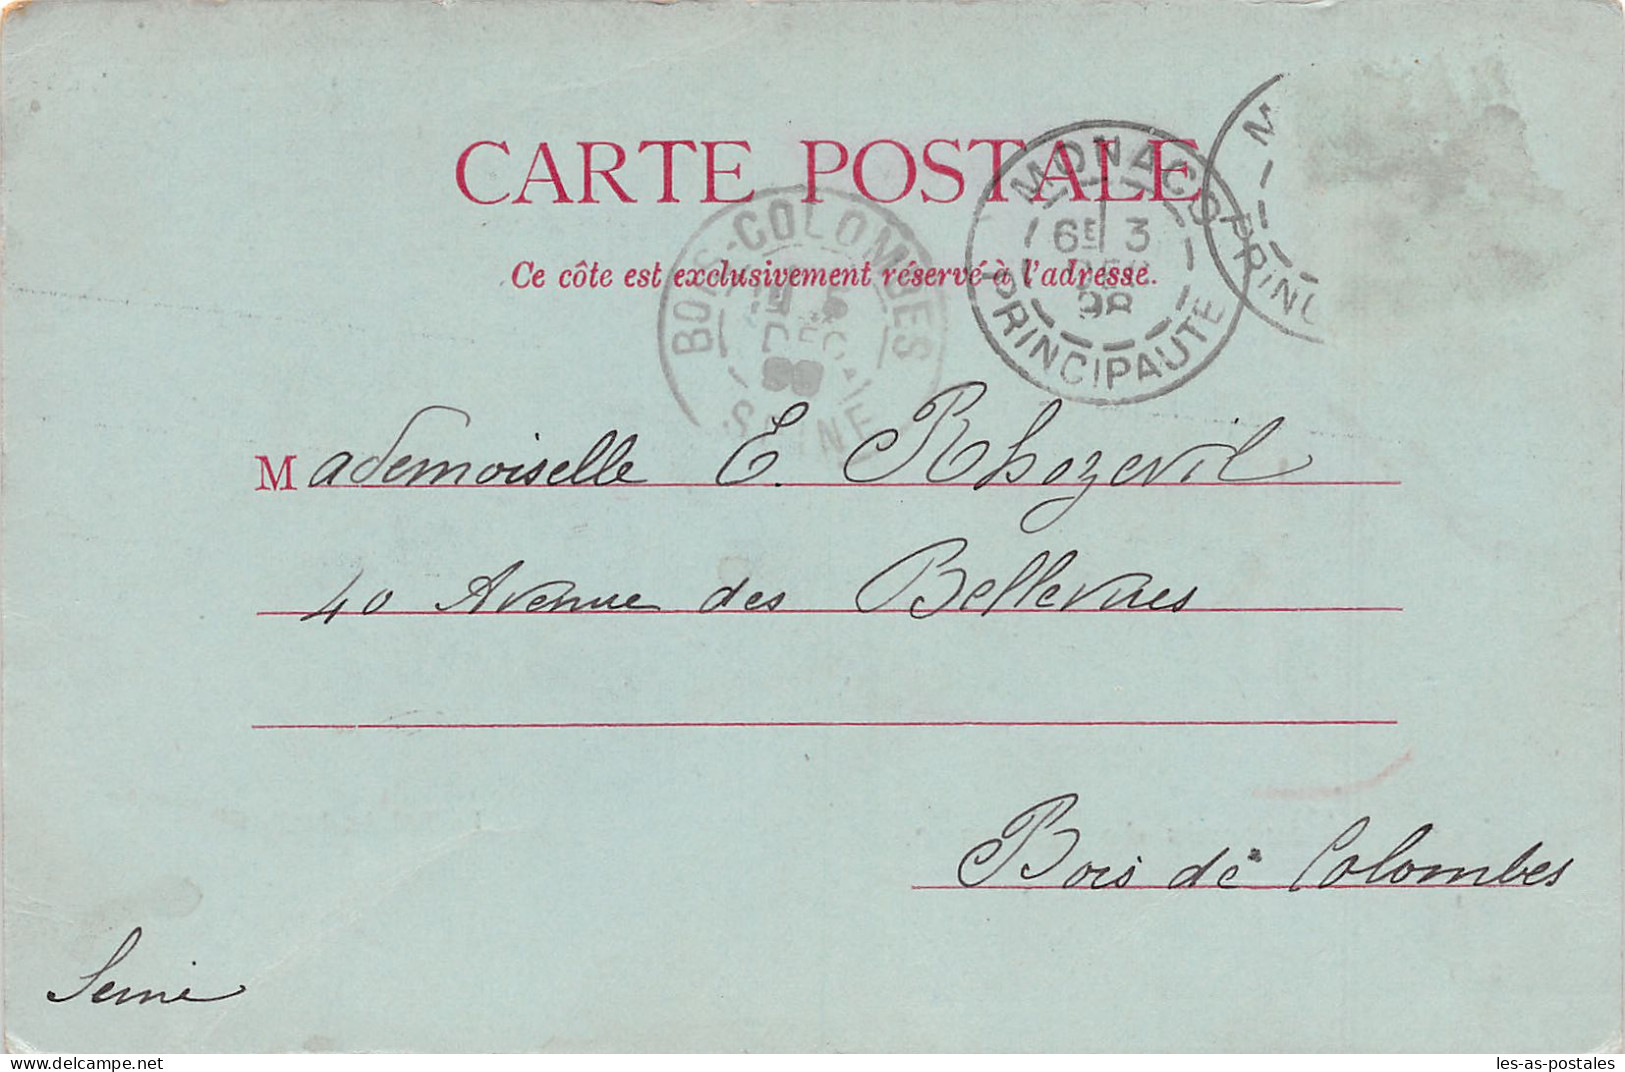 CARTE POSTALE
Ce côte est exclusivement réservé à l'adresse.
MONACO
6E 3
DEC
98
PRINCIPAUTE
M
PRINC
BOIS-COLOMBES
SEINE
Mademoiselle E. Rhozevil
40 Avenue des Bellevues
Bois de Colombes
Seine
les-as-postales